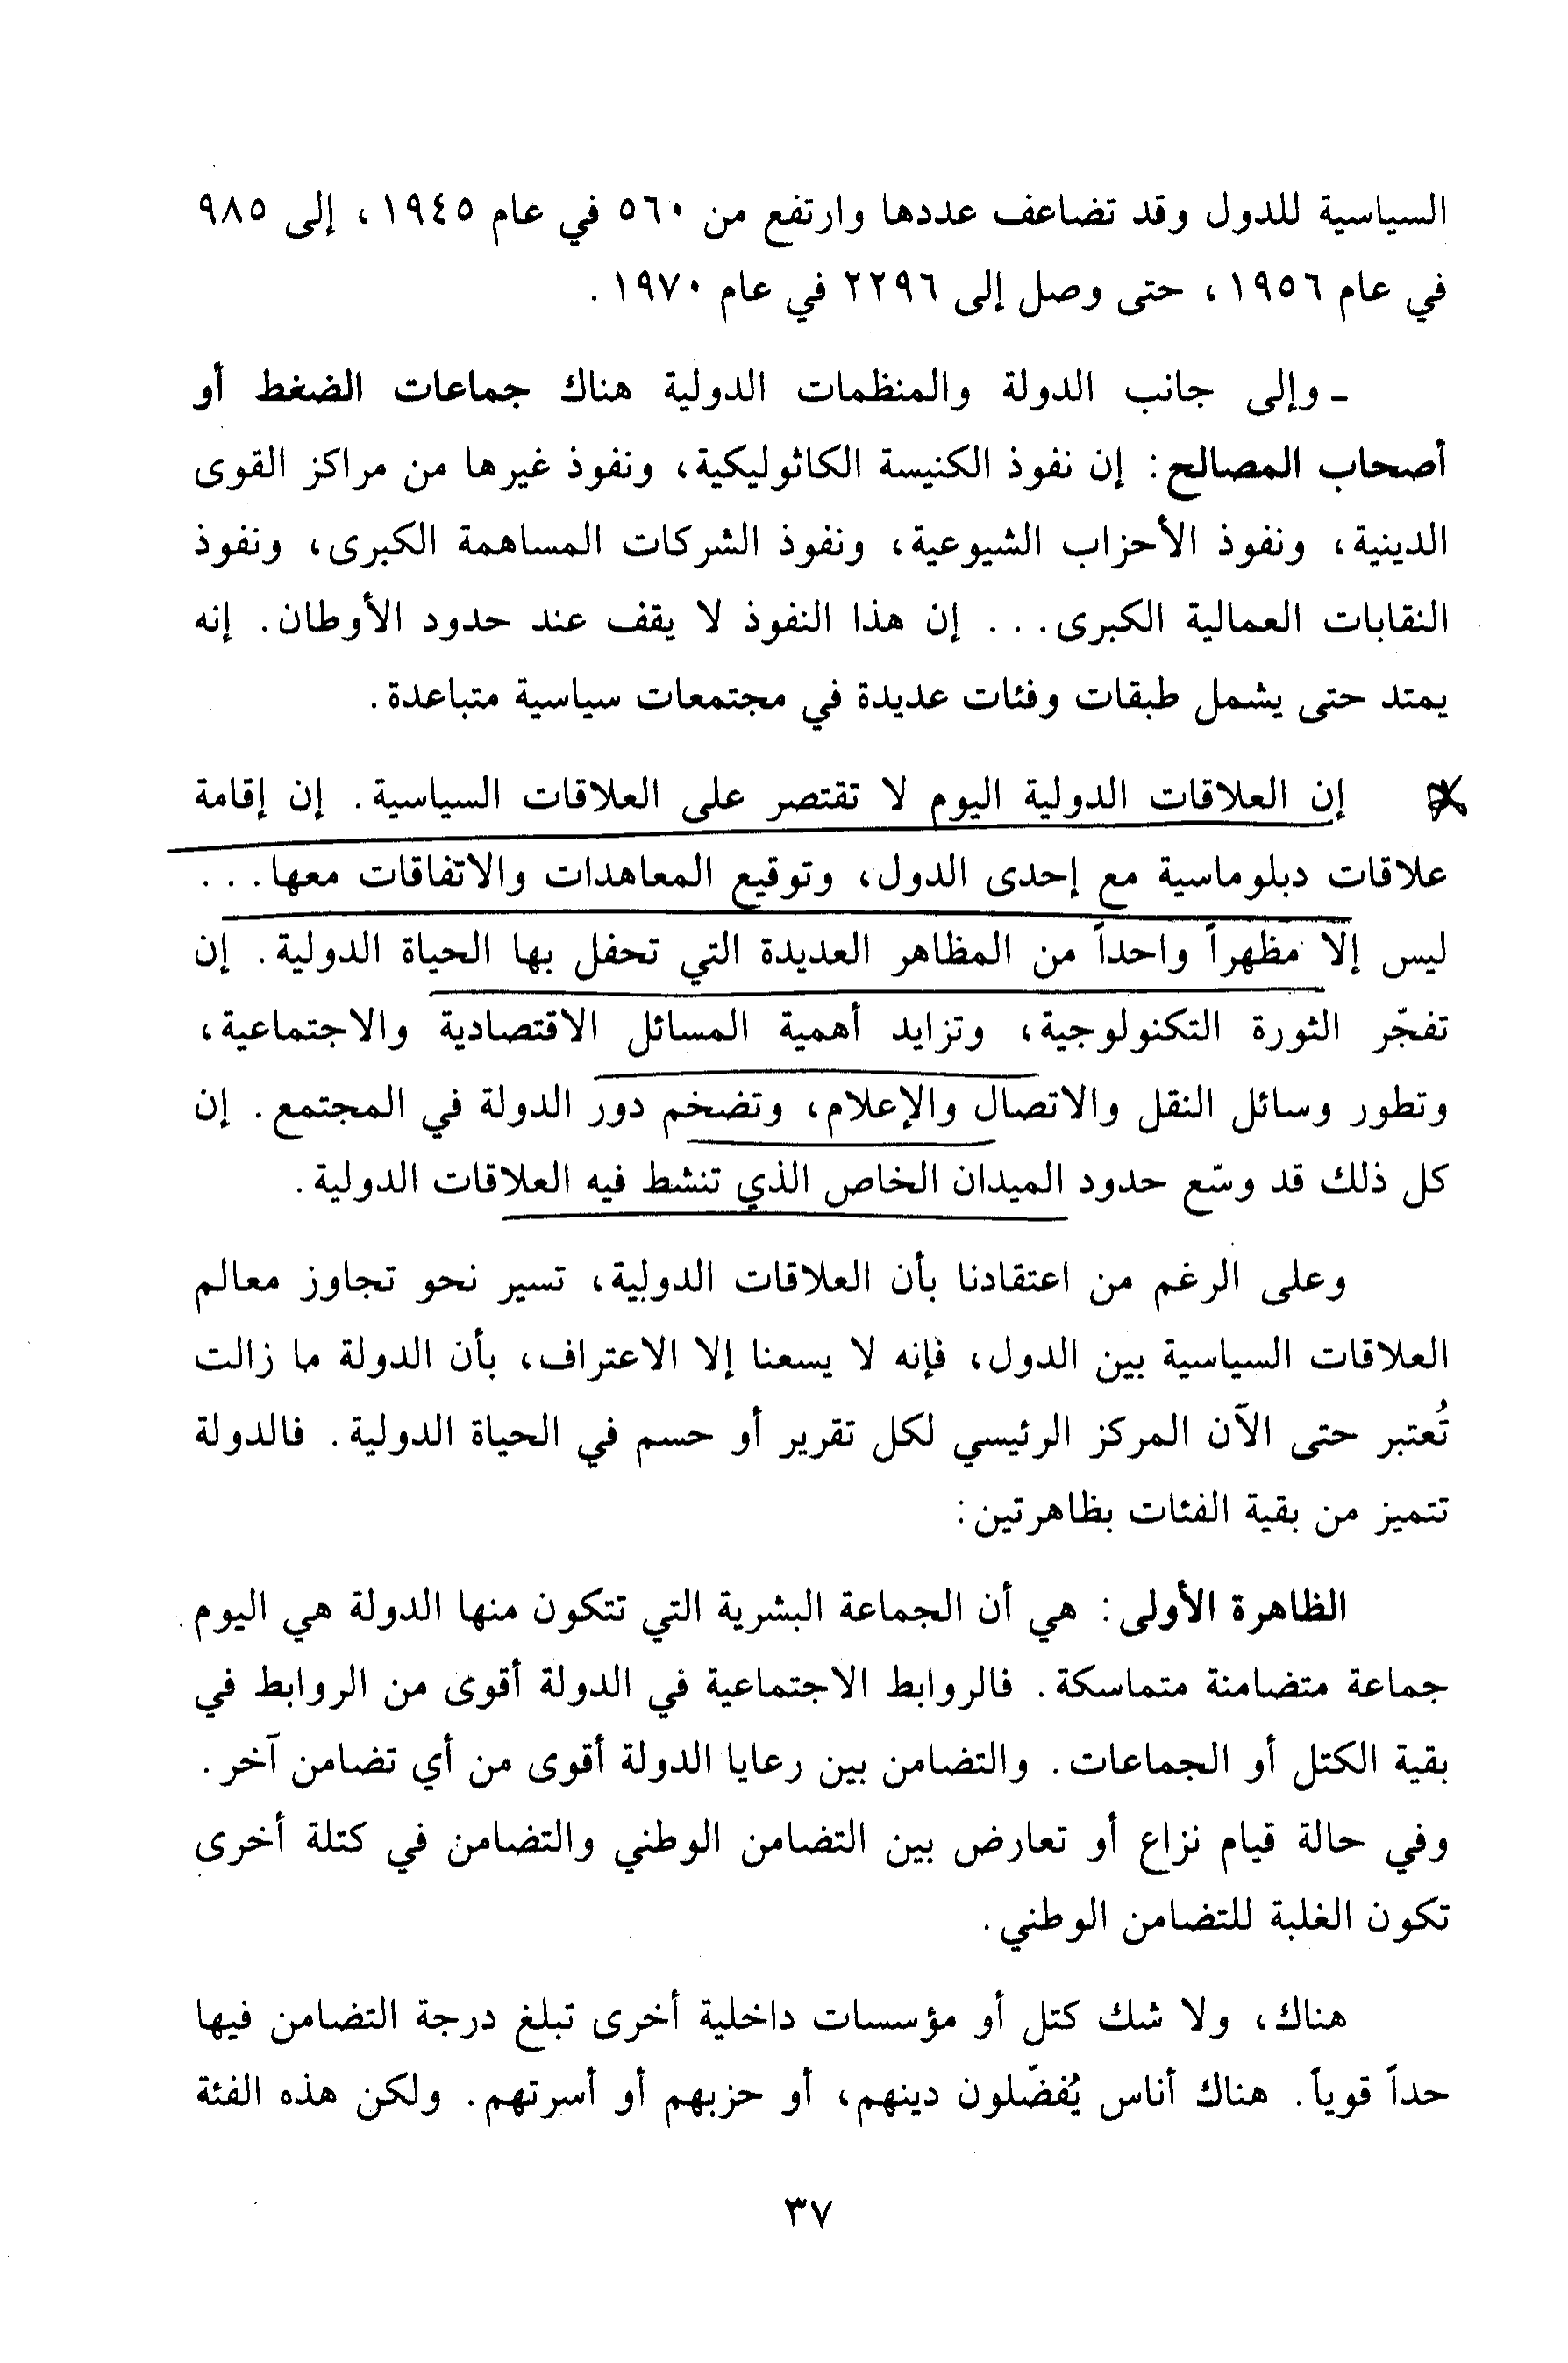 السياسية للدول وقد تضاعف عددها وارتفع من ٥٦٠ في عام ١٩٤٥، إلى ٩٨٥
في عام ١٩٥٦، حتى وصل إلى ٢٢٩٦ في عام ١٩٧٠.
- وإلى جانب الدولة والمنظمات الدولية هناك جماعات الضغط أو
أصحاب المصالح: إن نفوذ الكنيسة الكاثوليكية، ونفوذ غيرها من مراكز القوى
الدينية، ونفوذ الأحزاب الشيوعية، ونفوذ الشركات المساهمة الكبرى، ونفوذ
النقابات العمالية الكبرى... إن هذا النفوذ لا يقف عند حدود الأوطان. إنه
يمتد حتى يشمل طبقات وفئات عديدة في مجتمعات سياسية متباعدة.
إن العلاقات الدولية اليوم لا تقتصر على العلاقات السياسية. إن إقامة
علاقات دبلوماسية مع إحدى الدول، وتوقيع المعاهدات والاتفاقات معها...
ليس إلاّ مظهراً واحداً من المظاهر العديدة التي تحفل بها الحياة الدولية. إن
تفجّر الثورة التكنولوجية، وتزايد أهمية المسائل الاقتصادية والاجتماعية،
وتطور وسائل النقل والاتصال والإعلام، وتضخم دور الدولة في المجتمع. إن
كل ذلك قد وسّع حدود الميدان الخاص الذي تنشط فيه العلاقات الدولية.
وعلى الرغم من اعتقادنا بأن العلاقات الدولية، تسير نحو تجاوز معالم
العلاقات السياسية بين الدول، فإنه لا يسعنا إلا الاعتراف، بأن الدولة ما زالت
تُعتبر حتى الآن المركز الرئيسي لكل تقرير أو حسم في الحياة الدولية. فالدولة
تتميز من بقية الفئات بظاهرتين:
الظاهرة الأولى: هي أن الجماعة البشرية التي تتكون منها الدولة هي اليوم
جماعة متضامنة متماسكة. فالروابط الاجتماعية في الدولة أقوى من الروابط في
بقية الكتل أو الجماعات. والتضامن بين رعايا الدولة أقوى من أي تضامن آخر.
وفي حالة قيام نزاع أو تعارض بين التضامن الوطني والتضامن في كتلة أخرى
تكون الغلبة للتضامن الوطني.
هناك، ولا شك كتل أو مؤسسات داخلية أخرى تبلغ درجة التضامن فيها
حداً قوياً. هناك أناس يُفضّلون دينهم، أو حزبهم أو أسرتهم. ولكن هذه الفئة
٣٧